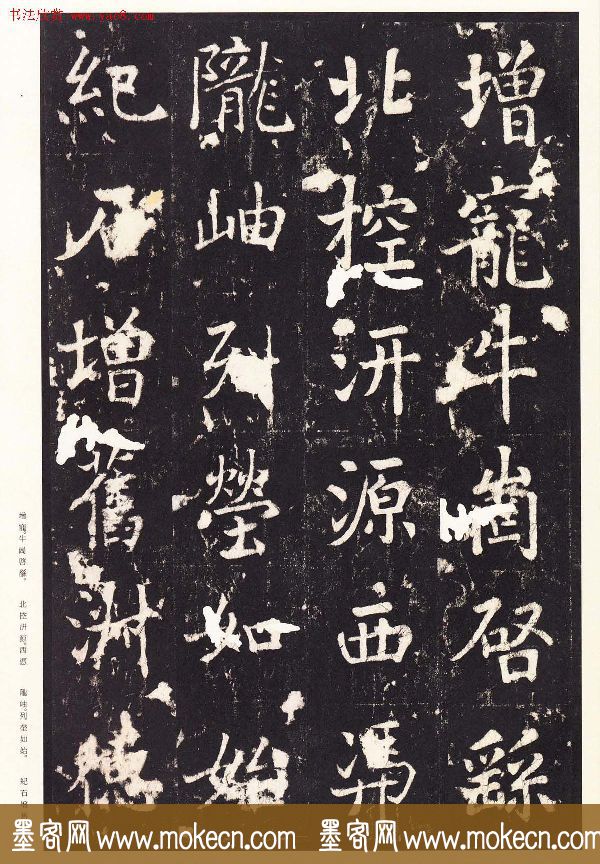 书法欣赏 www.yac8.com
增寵牛崮啓繇
北控汧源西馮
隴岫列塋如始
紀石增舊渊德
增寵。牛崮啓繇。 北控汧源。西馮 隴岫。列塋如始。 紀石增
墨客网 www.mokecn.com 墨客网 www.mokecn.com